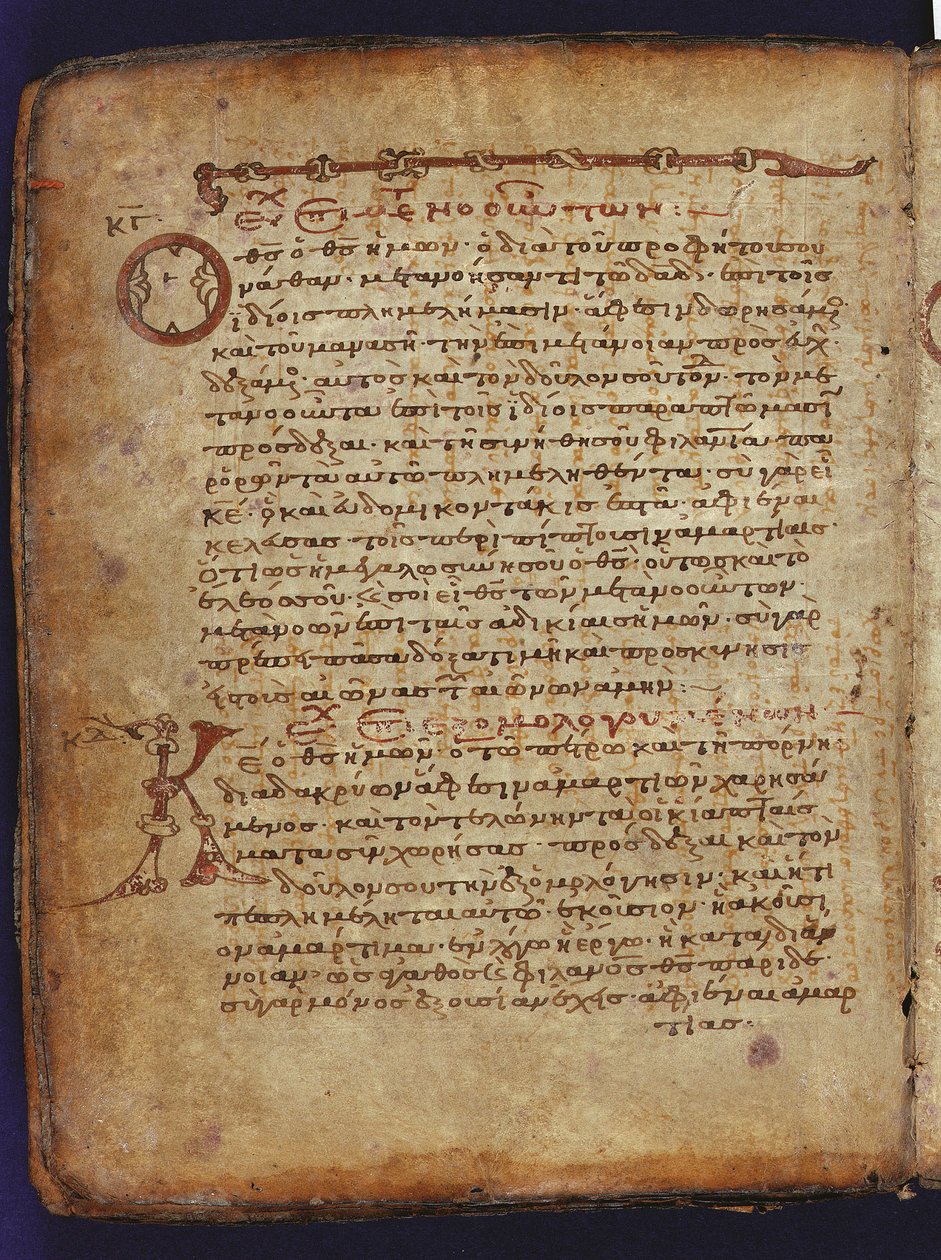 κγ
Εὐχ ἐπὶ μετανοούντων:
Ὁ θς ὁ θς ἡμῶν· ὁ διὰ τοῦ προφήτου σου
νάθαν· μετανοήσαντι τῶ δαδ· ἐπὶ τοῖς
ϊδίοις πλημελήμασιν· ἄφεσιν δωρησάμ
καὶ τοῦ μανασῆ· τὴν ἐπὶ μετάνοιαν προσευχ·
δεξάμ· αὐτὸς καὶ τὸν δοῦλον σου τόν δ· τὸν με
τανοοῦντα ἐπὶ τοῖς ϊδίοις παραπτώμασι
πρόσδεξαι· καὶ τῆ σινήθη σοῦ φιλανία πα
ρορῶν τὰ αὐτῶ πλημεληθέντα· σὺ γὰρ εἶ
κε· ὁ καὶ ἑυδομικοντάκις ἑπτὰ· ἀφιέναι
κελεύσας τοῖς περιπίπτουσιν ἁμαρτίαις·
Ὅτι ὡς ἡ μεγαλωσύνη σοῦ ὁ θς· οὕτως καὶ τὸ
ἔλεός σου· ϗ σοὶ εἶ θς τῶν μετανοούντων·
μετανοῶν ἐπὶ ταῖς αδικίαις ἡμῶν· σὺ γὰρ
πρέπει πᾶσα δόξα τιμὴ καὶ προσκίνησις
εἰς τοὺς αἰῶνας τ αἰώνων ἀμήν:
κδ
Εὐχ ἐπὶ ἐξομολογουμένων
Κε ὁ θς ἡμῶν· ὁ τῶ πέτρω καὶ τῆ πόρνη·
διὰ δακρύων ἄφεσιν ἁμαρτιῶν χαρησά
μενος· καὶ τὸν τελώνην τὰ οἰκία πταίς
ματα σινχωρήσας· πρόσδεξαι καὶ τὸν
δοῦλον σου τὴν ἐξομολόγησιν· καὶ ἤ τι
πεπλημέληται αυτῶ· ἑκούσιον· ἢ ἀκούσι
ον ἁμάρτιμα· ἐν λόγω ἢ ἔργω· ἢ κατα διά
νοιαν· ὡς ἀγαθὸς ϗ φιλανος θς παριδε·
σὺ γὰρ μόνος ἐξουσίαν ἔχεις· ἀφιέναι ἁμαρ
τίας·